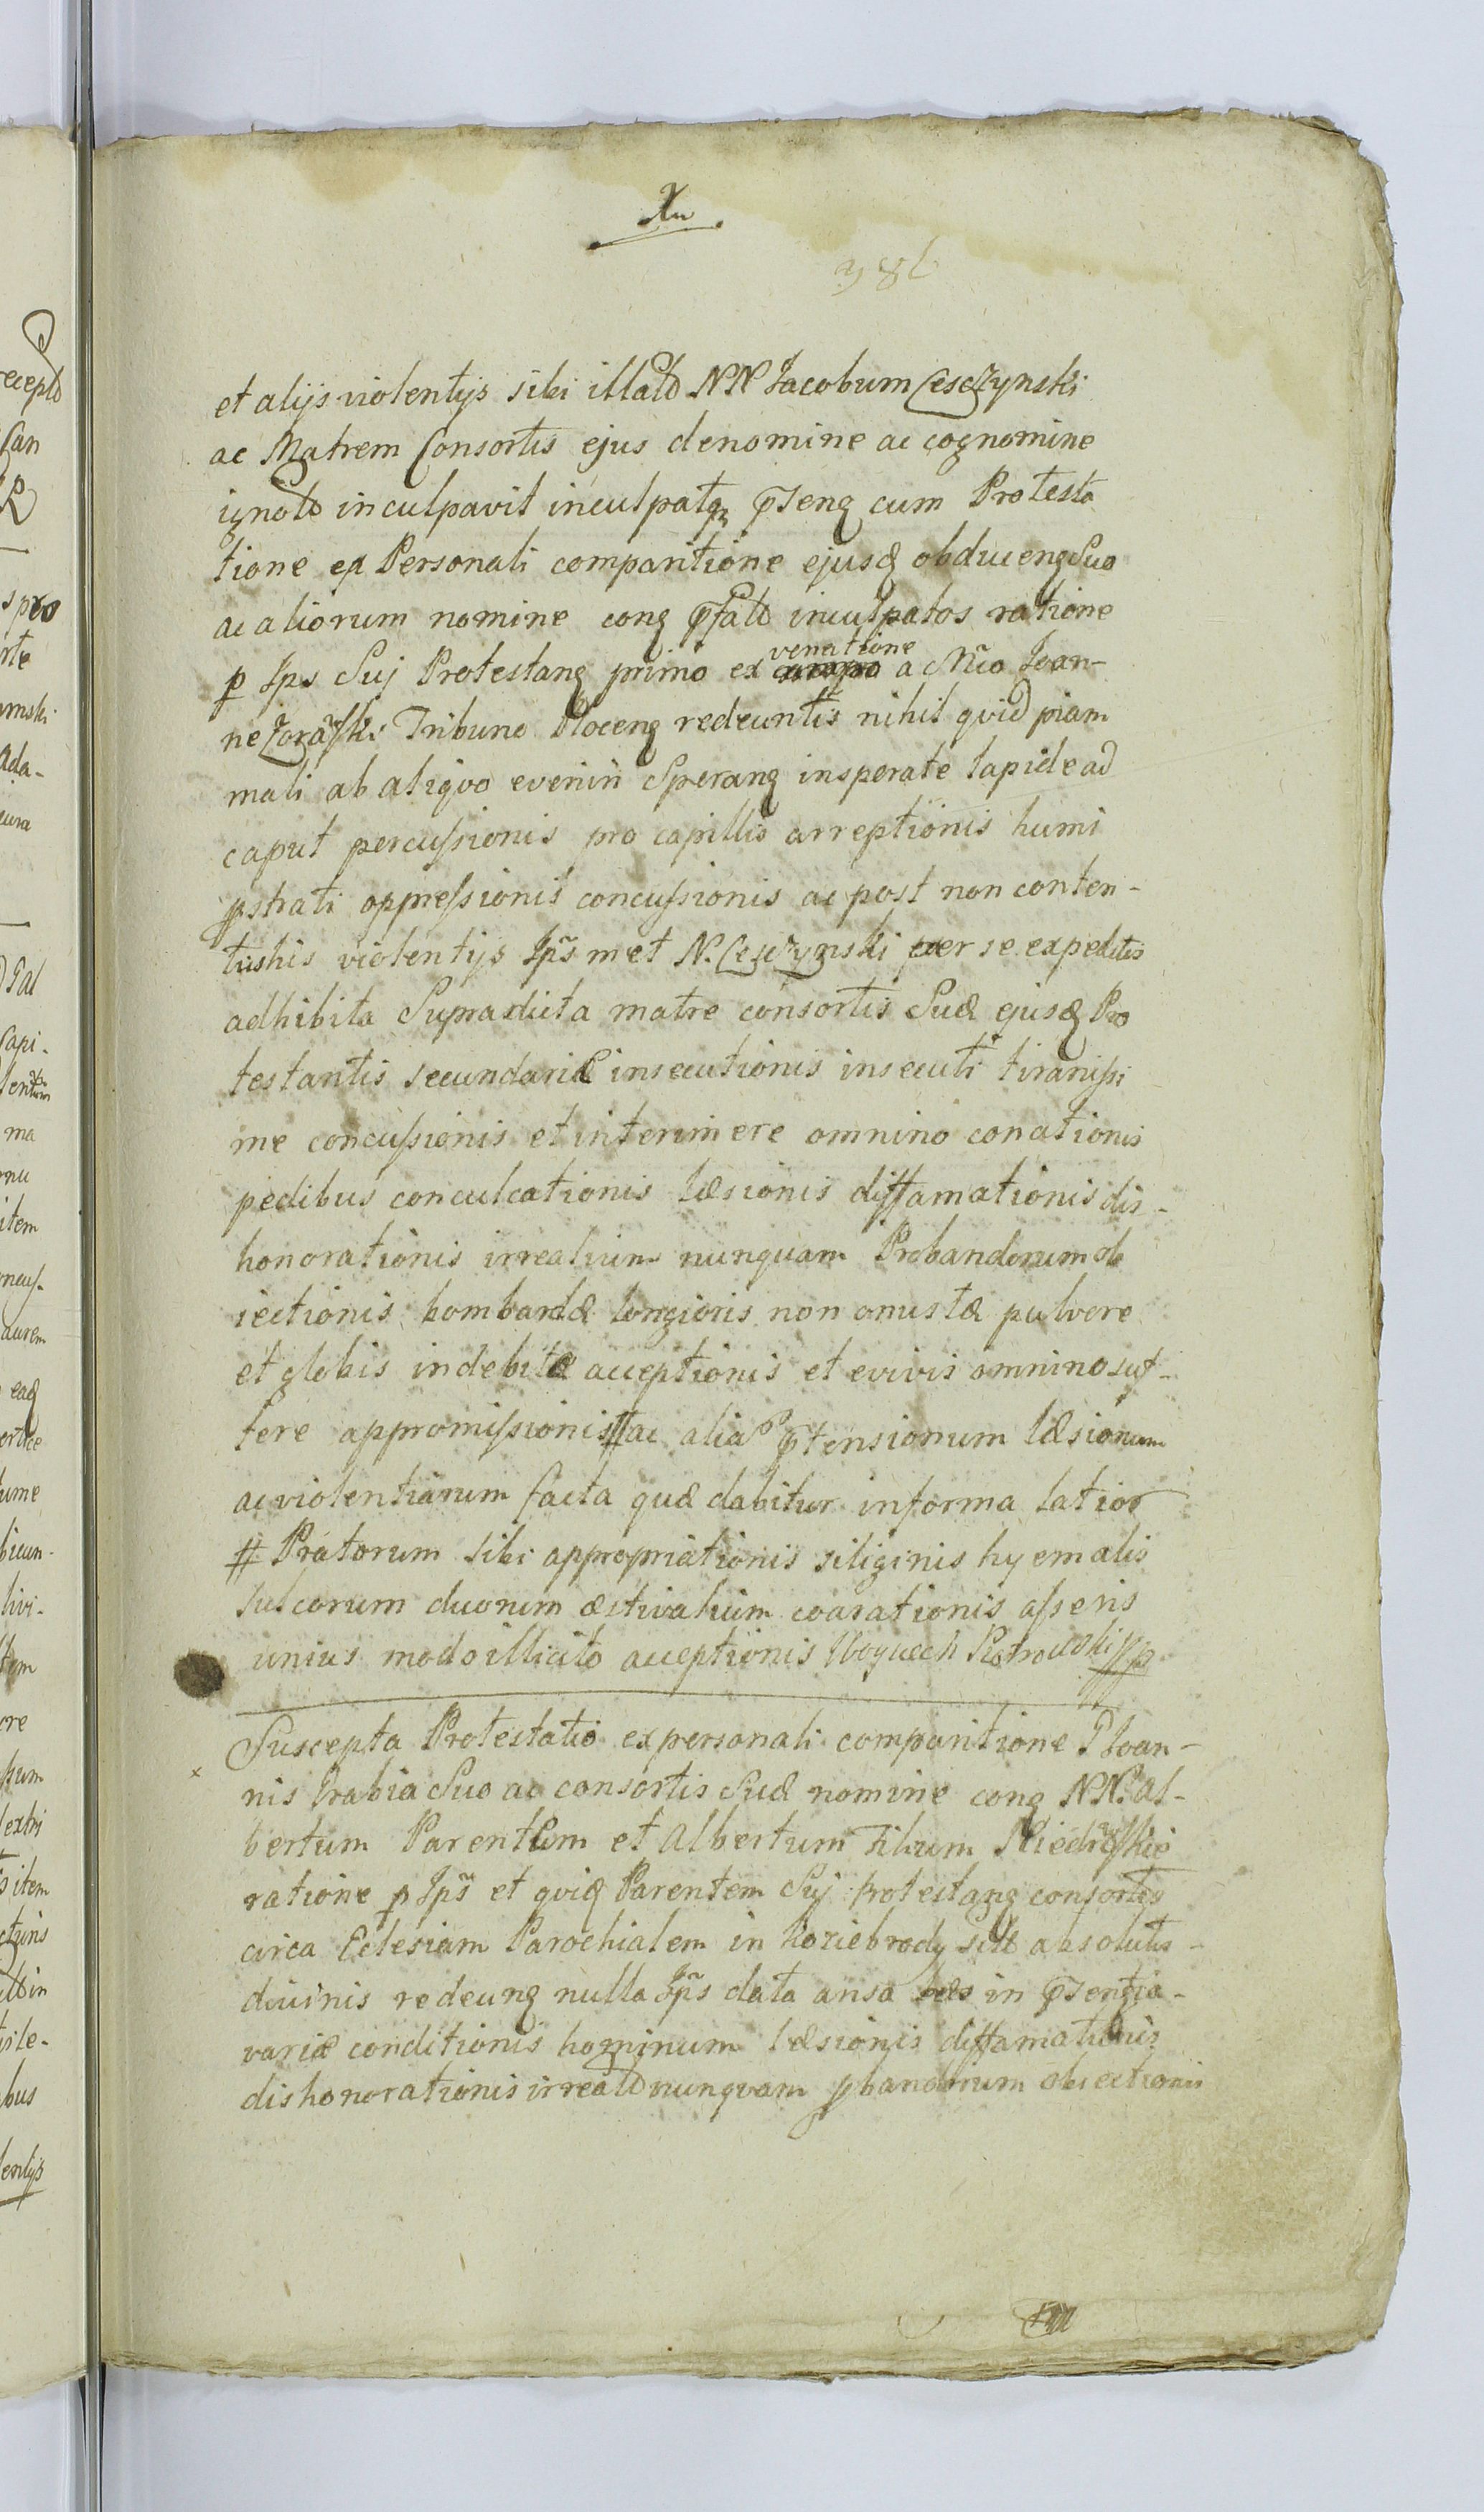 Xu
et alijs violentijs sibi illatō NN Jacobum Cesczynski
ac Matrem Consortis ejus de nomine ac cognomine
ignotō inculpavit inculpatqꝫ cum Protesta
tione ex Personali comparitione ejusdꝫ obducenꝫ Suo
ac aliorum nomine conꝫ inculpatos ratione
p Ips Suj Protestanꝫ primo ex venatione ac Mfico Joan-
ne Zorafski Tribuno Plocenꝫ redeuntis nihil quid piam
mali ab aliqvo eveniri Speranꝫ insperate lapide ad
caput percussionis pro capillis arreptionis humi
pstrati oppressionis concussionis ac post non conten-
tus his violentijs Ips met N. Cesczynski per se expeditis
adhibita Supradicta matre consortis Suæ ejusdꝫ Pro
testantis secundariæ insecutionis insecuti tiranissi
me concussionis et interimere omnino conationis
pedibus conculcationis læsionis diffamationis dis-
honorationis irrealium nunquam Probandorum ob
iectionis bombardæ longioris non onustæ pulvere
et globis indebitæ acceptionis et evivis omnino suf-
fere appromissionis # ac alia ptensionum læsionum
ac violentiarum facta quæ dabitur in forma latior
# Pratorum sibi appropriationis siliginis hyemalis
sulcorum duorum æstivalium coarationis asseris
unius modo illicito acceptionis Woyciech Piotrowski mp
Suscepta Protestatio ex personali comparitione P Joan-
x nis Grabia Suo ac consortis Suæ nomine conꝫ NN. Al-
bertum Parentem et Albertum Filium
ratione p Ips et qvidꝫ Parentem Suj protestanꝫ consortes
circa Eclesiam Parochialem in Koziebrody absolutis
divinis redeunꝫ nulla Ips data ansa in
variæ conditionis hominum læsionis diffamationis
dishonorationis irrealō nunqvam pbandorum obiectionis